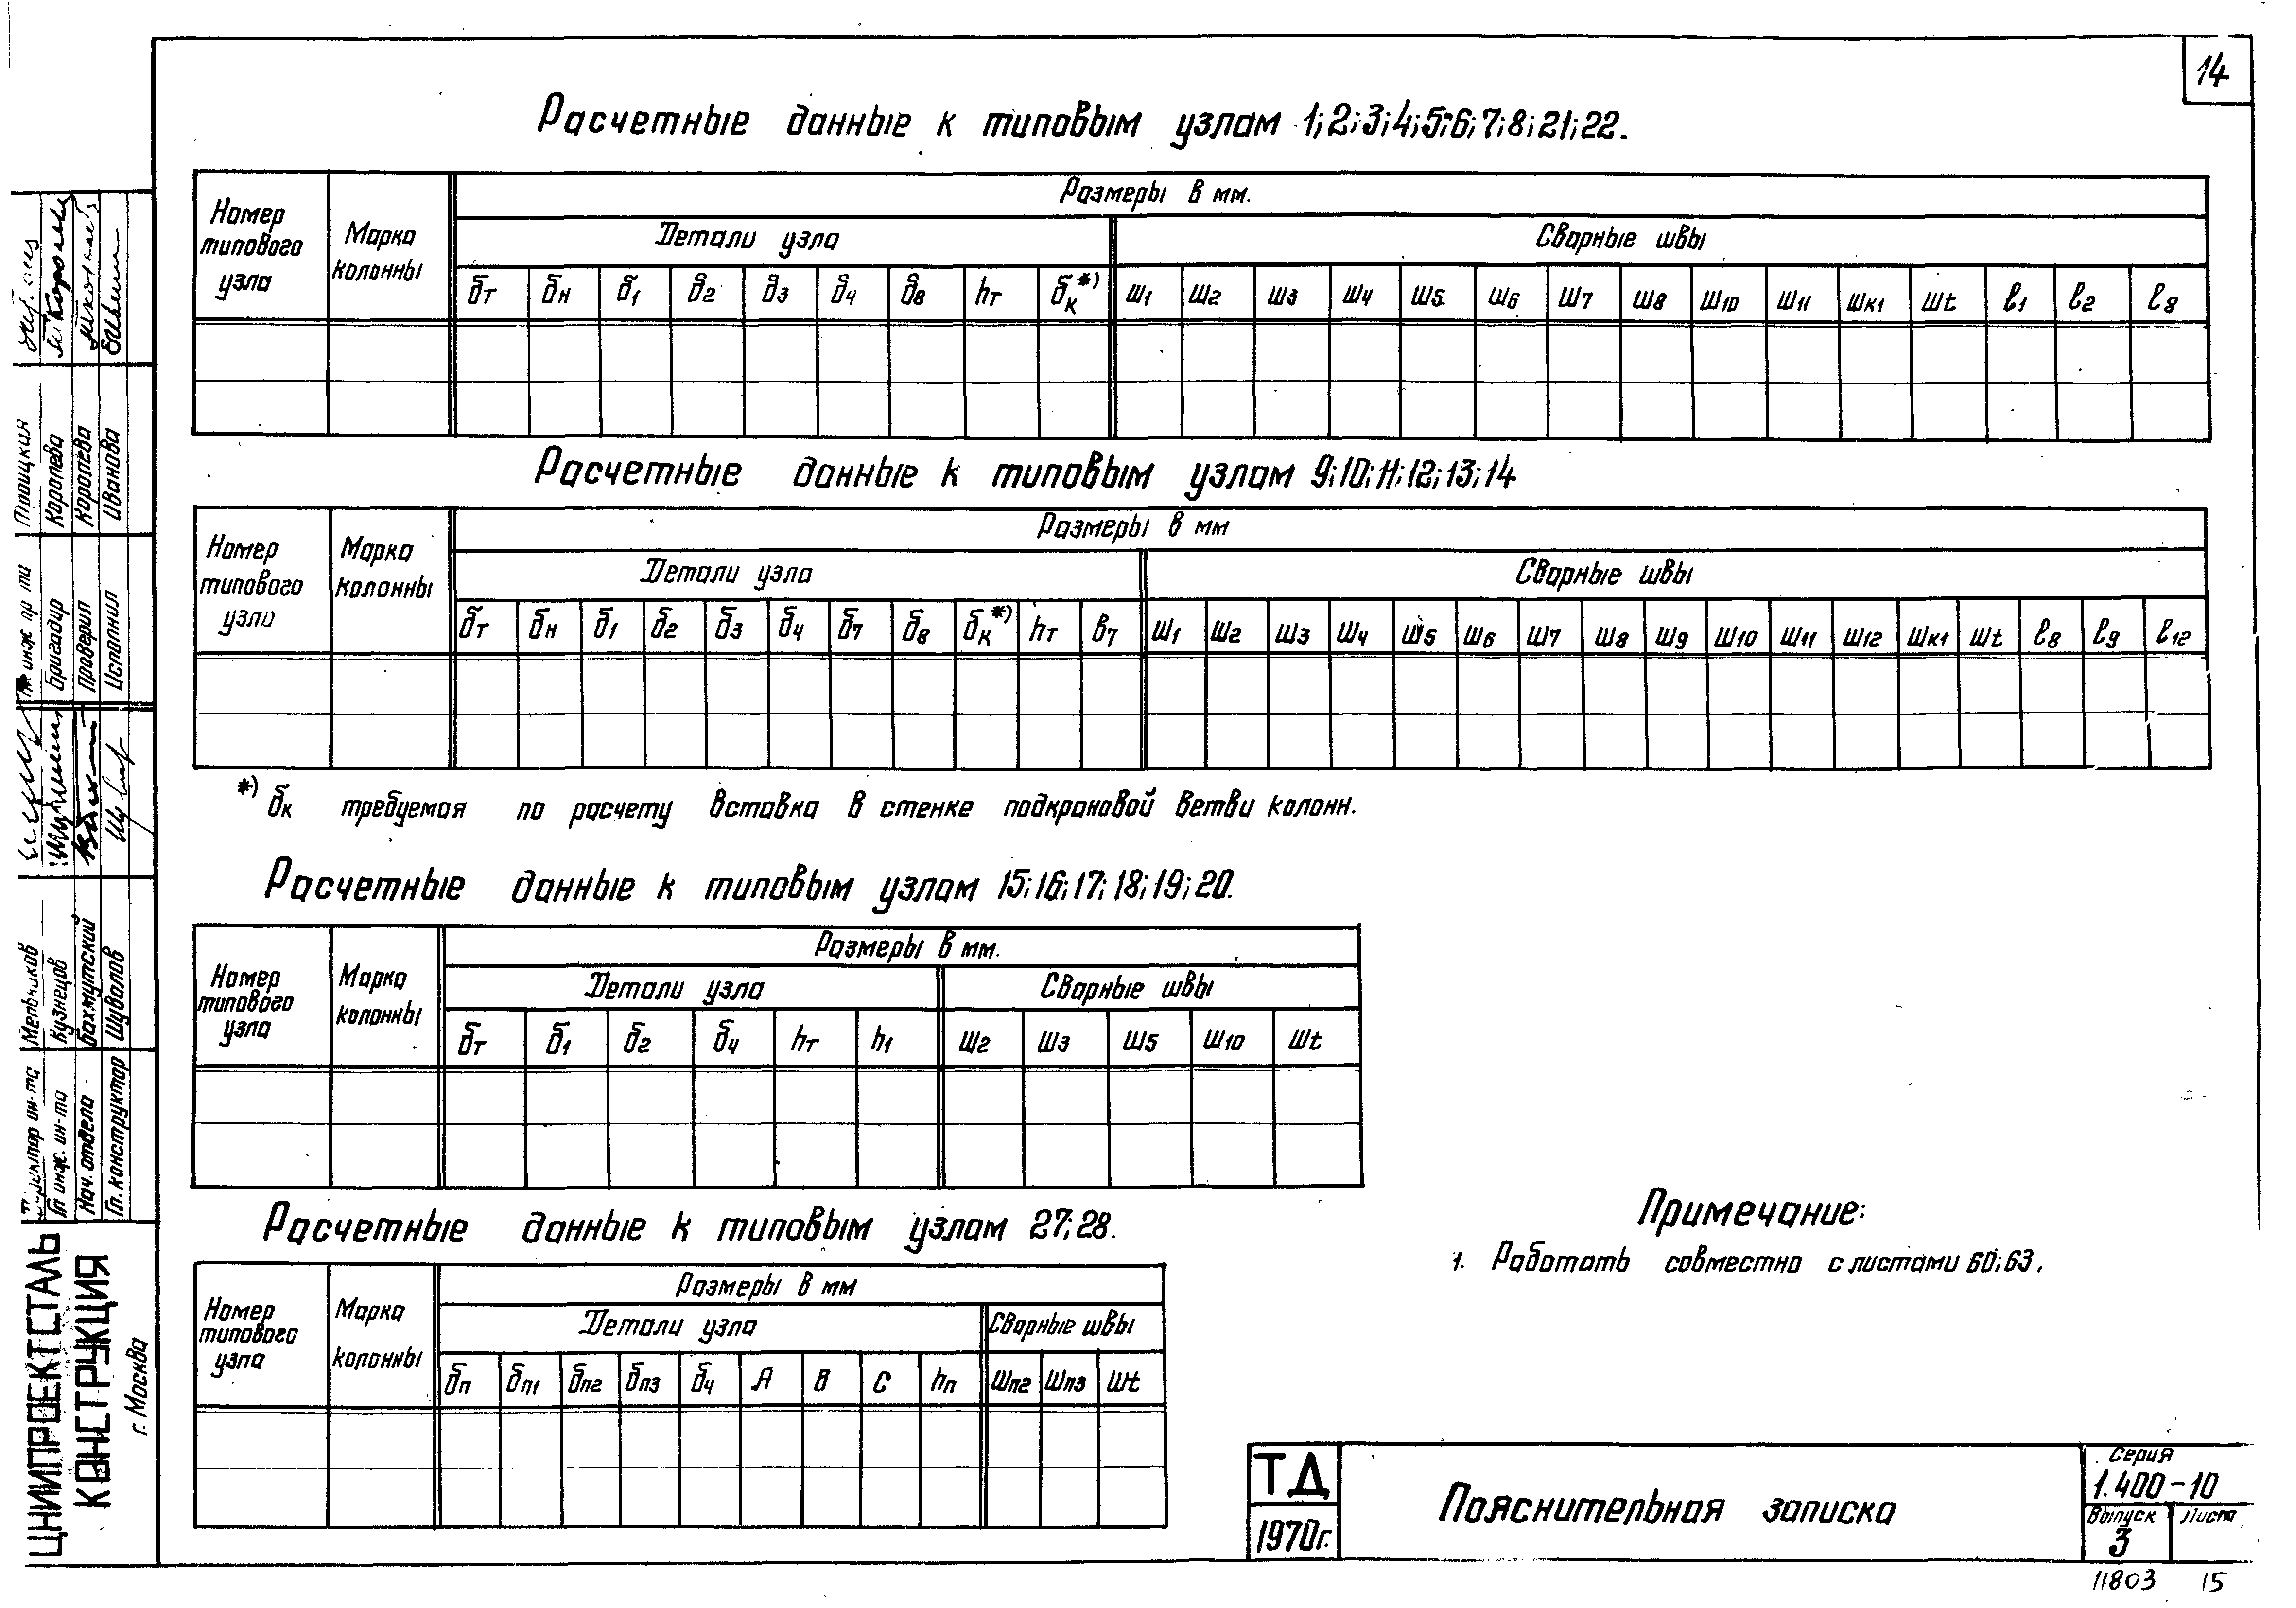 14
Расчетные данные к типовым узлам 1; 2; 3; 4; 5; 6; 7; 8; 21; 22.
Номер типового узла
Марка колонны
Размеры в мм.
Детали узла
Сварные швы
δт δн δ1 δ2 δ3 δ4 δ8 hт δк*) ш1 ш2 ш3 ш4 ш5 ш6 ш7 ш8 ш10 ш11 шк1 шt ℓ1 ℓ2 ℓ8
Расчетные данные к типовым узлам 9; 10; 11; 12; 13; 14
Номер типового узла
Марка колонны
Размеры в мм
Детали узла
Сварные швы
δт δн δ1 δ2 δ3 δ4 δ7 δ8 δк*) hт в7 ш1 ш2 ш3 ш4 ш5 ш6 ш7 ш8 ш9 ш10 ш11 ш12 шк1 шt ℓ8 ℓ9 ℓ12
*) δк требуемая по расчету вставка в стенке подкрановой ветви колонн.
Расчетные данные к типовым узлам 15; 16; 17; 18; 19; 20.
Номер типового узла
Марка колонны
Размеры в мм.
Детали узла
Сварные швы
δт δ1 δ2 δ4 hт h1 ш2 ш3 ш5 ш10 шt
Расчетные данные к типовым узлам 27; 28.
Номер типового узла
Марка колонны
Размеры в мм
Детали узла
Сварные швы
δп δп1 δп2 δп3 δ4 А В С hп шп2 шп3 шt
Примечание:
1. Работать совместно с листами 60; 63.
ТД
1970г.
Пояснительная записка
Серия
1.400-10
Выпуск
3
Листа
11803 15
ЦНИИПРОЕКТСТАЛЬ
КОНСТРУКЦИЯ
г. Москва
Директор ин-та Мельников
Гл инж. ин-та Кузнецов
Нач. отдела Бахмутский
Гл. конструктор Шувалов
инж пр
Бригадир Королева
Проверил Королева
Исполнил Иванова